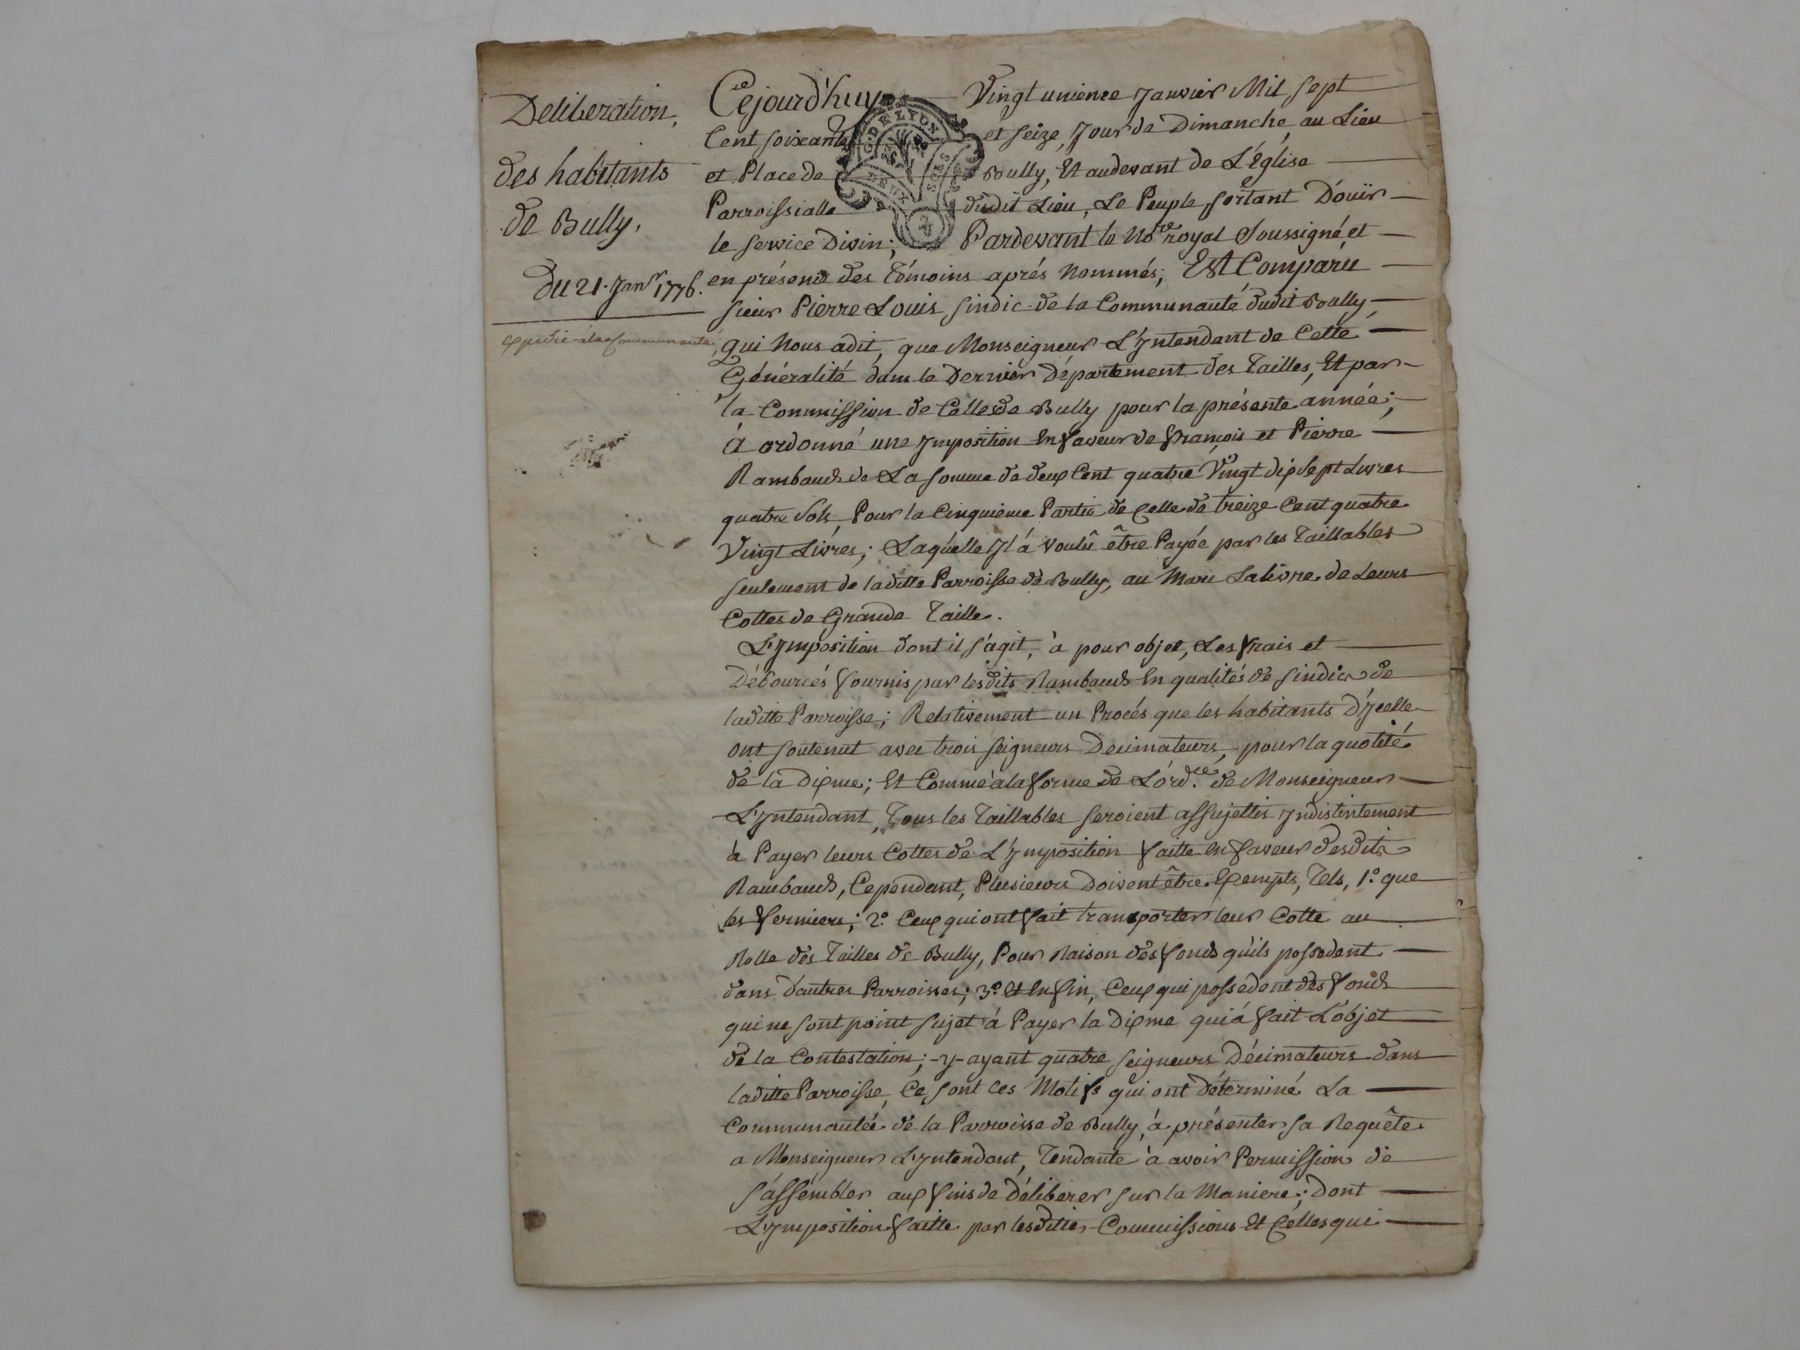 Deliberation,
des habitants
de Bully.
Du 21. Janr. 1776.
expedié a la Communauté,
Cejourd'huy Vingt unieme Janvier Mil sept
Cent soixante et seize, Jour de Dimanche, au Lieu
et Place de Bully, Et audevant de L'église
Parroissialle dudit Lieu, Le Peuple sortant D'ouïr
le service Divin; Pardevant le Nore. royal Soussigné, et
en présence des Témoins aprés Nommés; Est Comparu
sieur Pierre Louis, sindic de la Communauté dudit Bully,
qui Nous a dit, que Monseigneur L'Yntendant de Cette
Généralité dans le Dernier département des Tailles, Et par
la Commission de Celle de Bully pour la présente année;
à ordonné une Ymposition En faveur de François et Pierre
Rambaud de La somme de deux Cent quatre Vingt dix sept Livres
quatre Sols, Pour la Cinquiéme Partie de Celle de treize Cent quatre
Vingt Livres; Laquelle Yl à voulû être Payée par les Taillables
seulement de laditte Parroisse de Bully, au Marc La livre de Leurs
Cottes de Grande Taille.
L'Ymposition dont il s'agit, à pour objet, Les frais et
Déboursés fournis par lesdits Rambaud En qualités de sindics de
laditte Parroisse; Relativement un Procés que les habitants d'ycelle
ont soutenut avec trois seigneurs Decimateurs, pour la quotité
de la Dixme; Et Comme à la forme de L'ordce. de Monseigneur
L'Yntendant, Tous les Taillables seroient assujettis Yndistintement
à Payer leurs Cottes de L'Ymposition faitte En faveur desdits
Rambaud, Cependant, Plusieurs doivent être Exempts, Tels, 1.º que
les fermiers; 2.º Ceux qui ont fait transporter leur Cotte au
Rolle des Tailles de Bully, Pour Raison des fonds qu'ils possedent
dans d'autres Parroisses; 3.º Et Enfin, Ceux qui possedent des fonds
qui ne sont point sujet à Payer la Dixme qui à fait L'objet
de la Contestation; y ayant quatre seigneurs Décimateurs dans
laditte Parroisse, Ce sont Ces Motifs qui ont déterminé La
Communauté de la Parroisse de Bully, à présenter sa Requête
a Monseigneur L'Yntendant, Tendante à avoir Permission de
s'assémbler aux fins de Délibérer sur la Maniere; dont
L'Ymposition faitte par lesdittes Commissions Et Celles qui
G. DE LYON
DEUX SOLS